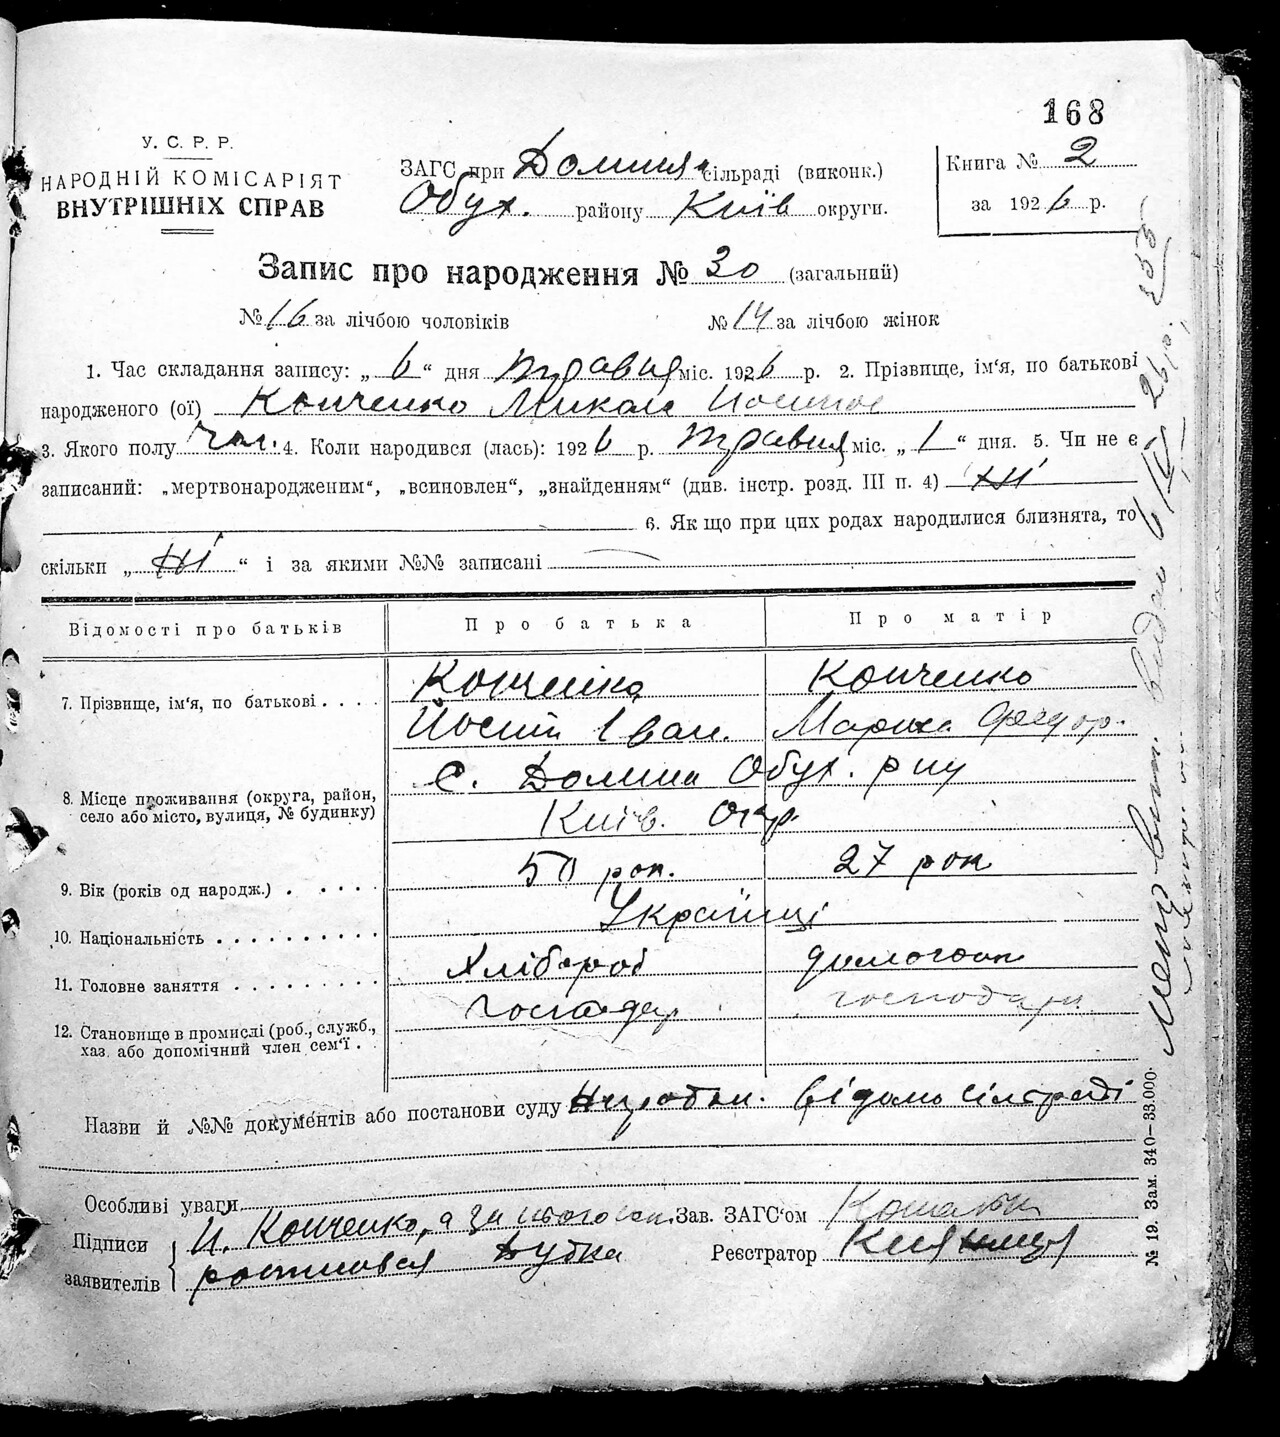 168
У. С. Р. Р.
НАРОДНІЙ КОМІСАРІЯТ
ВНУТРІШНІХ СПРАВ
ЗАГС при Долинян сільраді (виконк.)
Обух. району Київ округи.
Книга № 2
за 1926 р.
Запис про народження № 30 (загальний)
№ 16 за лічбою чоловіків № 14 за лічбою жінок
1. Час складання запису: „ 6 “ дня травня міс. 1926 р. 2. Прізвище, ім‘я, по батькові
народженого (ої) Конченко Микола Йосипов
3. Якого полу чол. 4. Коли народився (лась): 1926 р. травня міс. „ 1 “ дня. 5. Чи не є
записаний: „мертвонародженим“, „всиновлен“, „знайденням“ (див. інстр. розд. III п. 4) ні
6. Як що при цих родах народилися близнята, то
скільки „ ні “ і за якими №№ записані
Відомості про батьків Про батька Про матір
7. Прізвище, ім‘я, по батькові . . . . Конченко Конченко
Йосип Іван. Марина Федор.
8. Місце проживання (округа, район, село або місто, вулиця, № будинку) с. Долина Обух. р-ну
Київ. Окр.
9. Вік (років од народж.) . . . . . 50 рок. 27 рок
10. Національність . . . . . . . . . . Українці
11. Головне заняття . . . . . . . . . . Хлібороб домогосп
12. Становище в промислі (роб., служб., хаз. або допомічний член сем‘ї . . Господар господари
Назви й №№ документів або постанови суду відомо сільраді
Особливі уваги
Підписи заявителів Й. Конченко, а за нього
росписався Дубка
Зав. ЗАГС‘ом
Реєстратор
№ 19. Зам. 340—33.000.
видан 6/IV 26 р.